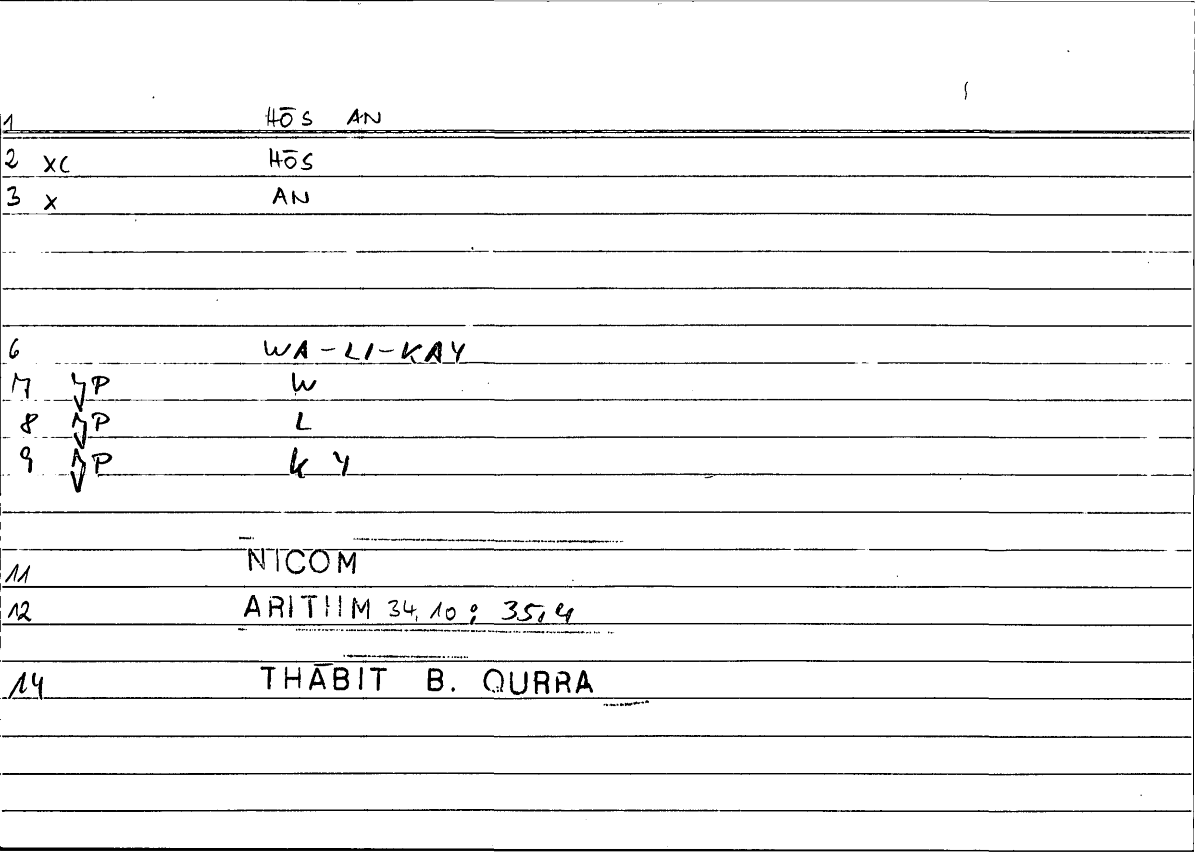 1 HŌS AN
2 XC HŌS
3 X AN
6 WA-LI-KAY
7 P W
8 P L
9 P K Y
11 NICOM
12 ARITHM 34,10; 35,4
14 THĀBIT B. QURRA